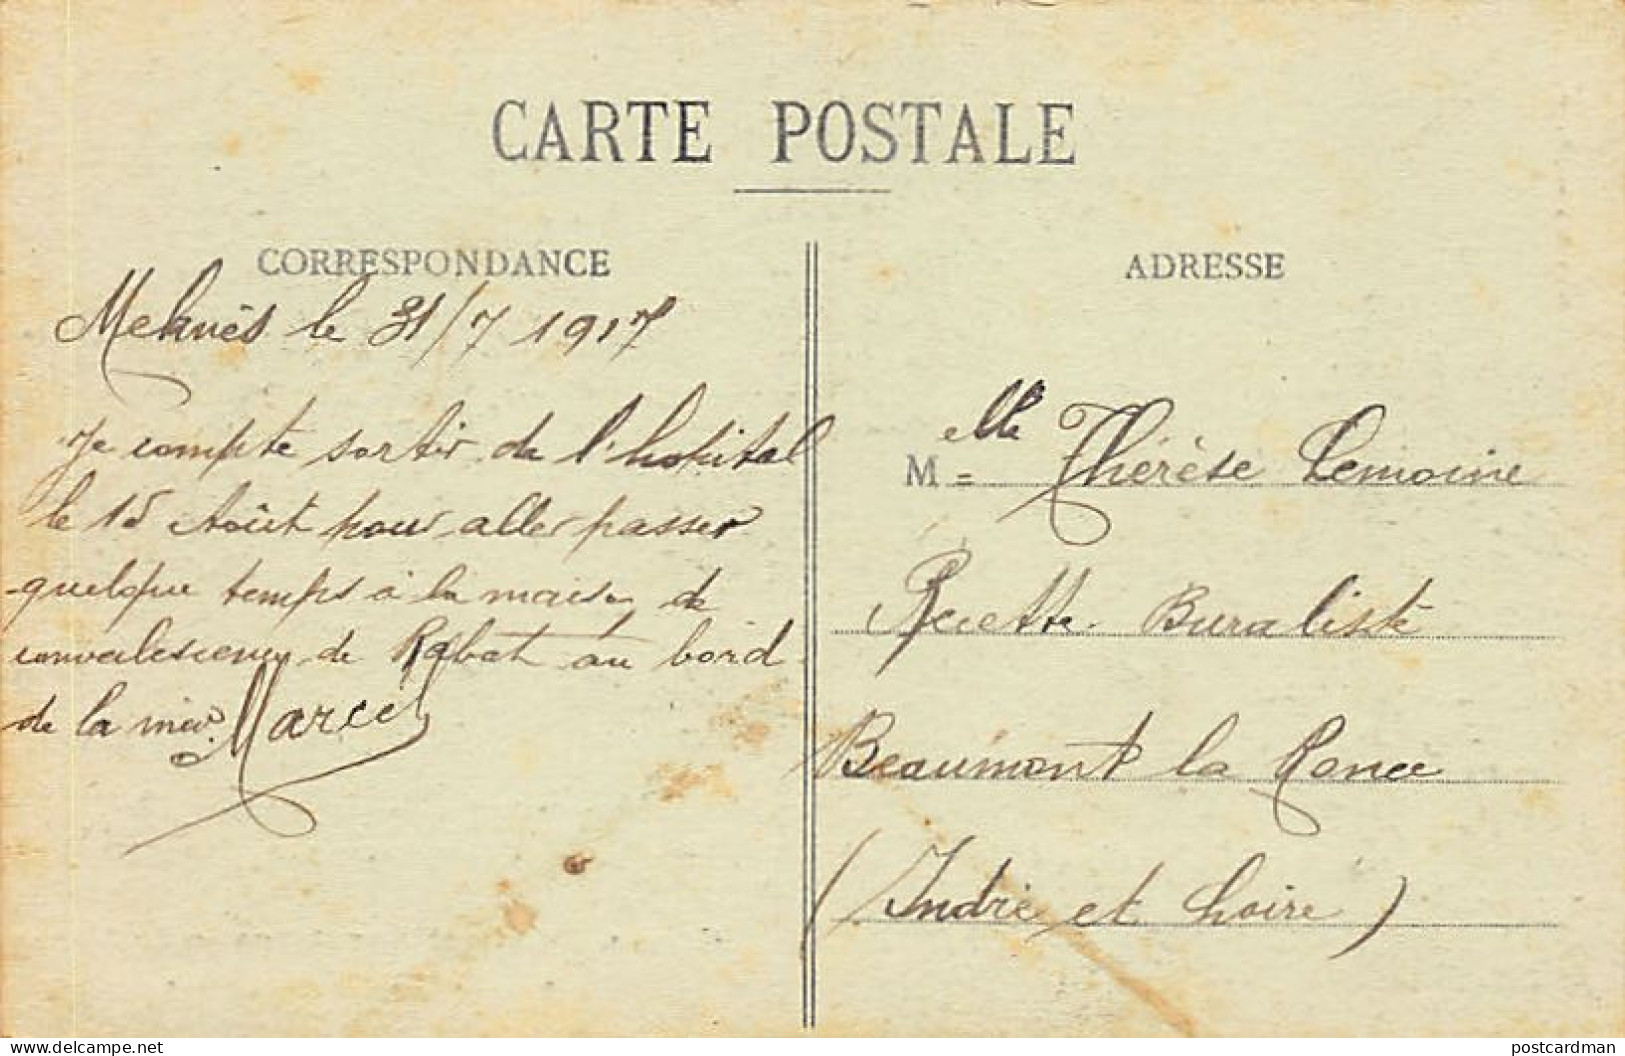 CARTE POSTALE
CORRESPONDANCE
Meknès le 31/7 1917
Je compte sortir de l'hopital
le 15 Août pour aller passer
quelque temps à la maison de
convalescence de Rabat au bord
de la mer. Marcel
ADRESSE
M = elle Thérèse Lemoine
Recette Buraliste
Beaumont la Ronce
(Indre et Loire)
www.delcampe.net
postcardman